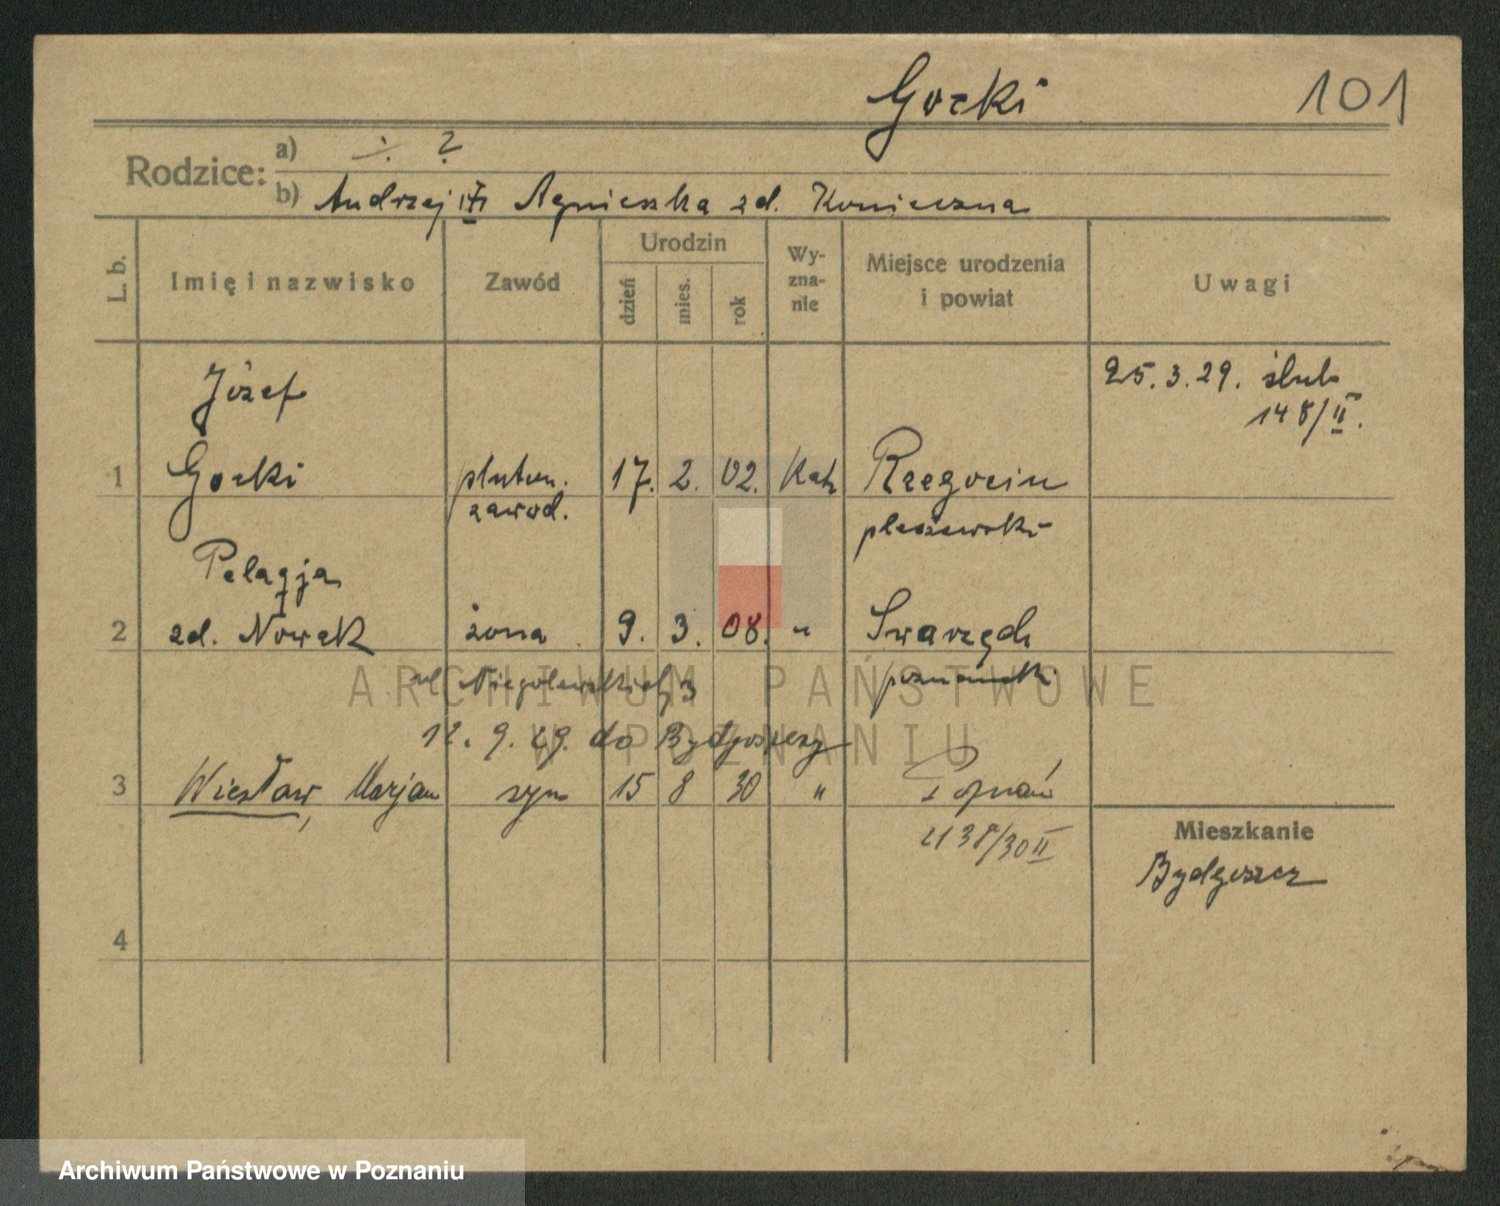 Gocki 101
Rodzice: a) ÷ ?
b) Andrzej Agnieszka zd. Konieczna
L. b. Imię i nazwisko Zawód Urodzin dzień mies. rok Wy-zna-nie Miejsce urodzenia i powiat Uwagi
Józef 25.3.29. ślub
148/II.
1 Gocki pluton. 17. 2. 02. Kat Rzegocin
zawod. pleszewski
Pelagja
2 zd. Nowak żona 9. 3. 08. " Swarzędz
ul Niegolewskich 3 poznański
12. 9. 29. do Bydgoszczy
3 Wiesław, Marjan syn 15 8 30 " Poznań
2138/30 II
Mieszkanie
Bydgoszcz
4
ARCHIWUM PAŃSTWOWE
W POZNANIU
Archiwum Państwowe w Poznaniu